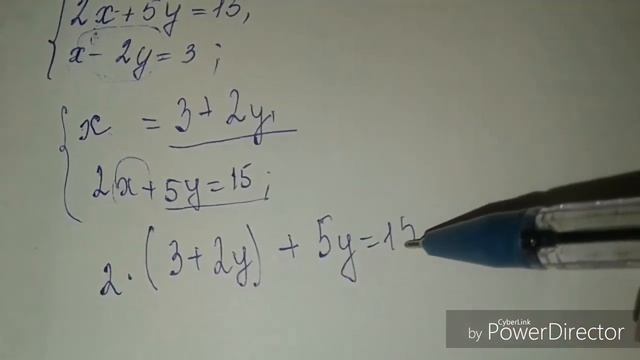 2x+5y=15,
x-2y=3;
x = 3+2y,
2x+5y=15;
2·(3+2y)+5y=15
CyberLink
by PowerDirector